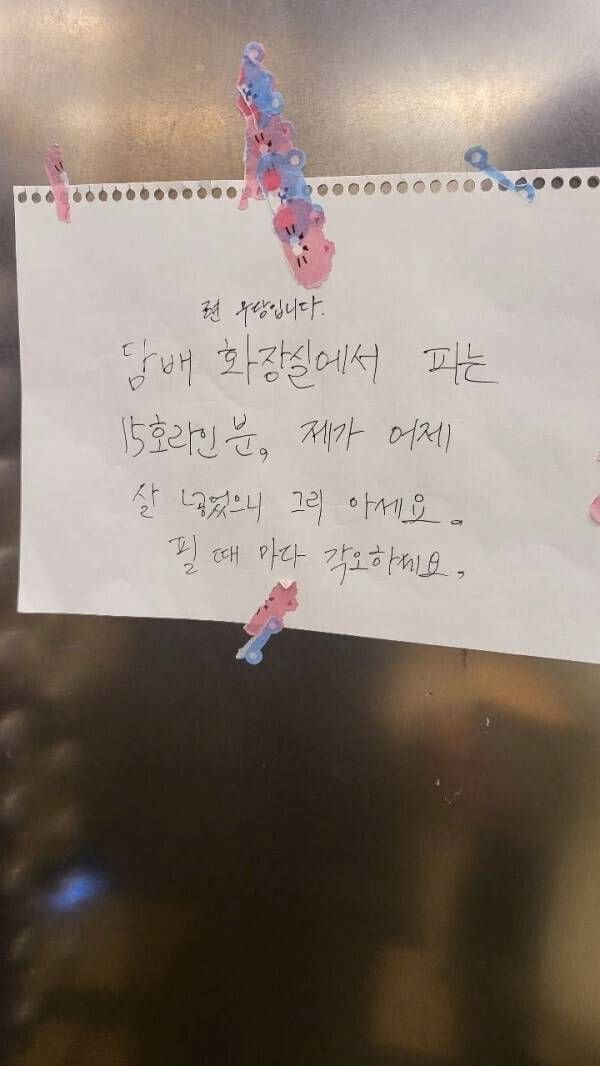 전 무당입니다.
담배 화장실에서 피는
15호라인 분, 제가 어제
살 넣었으니 그리 아세요.
필 때 마다 각오하세요.